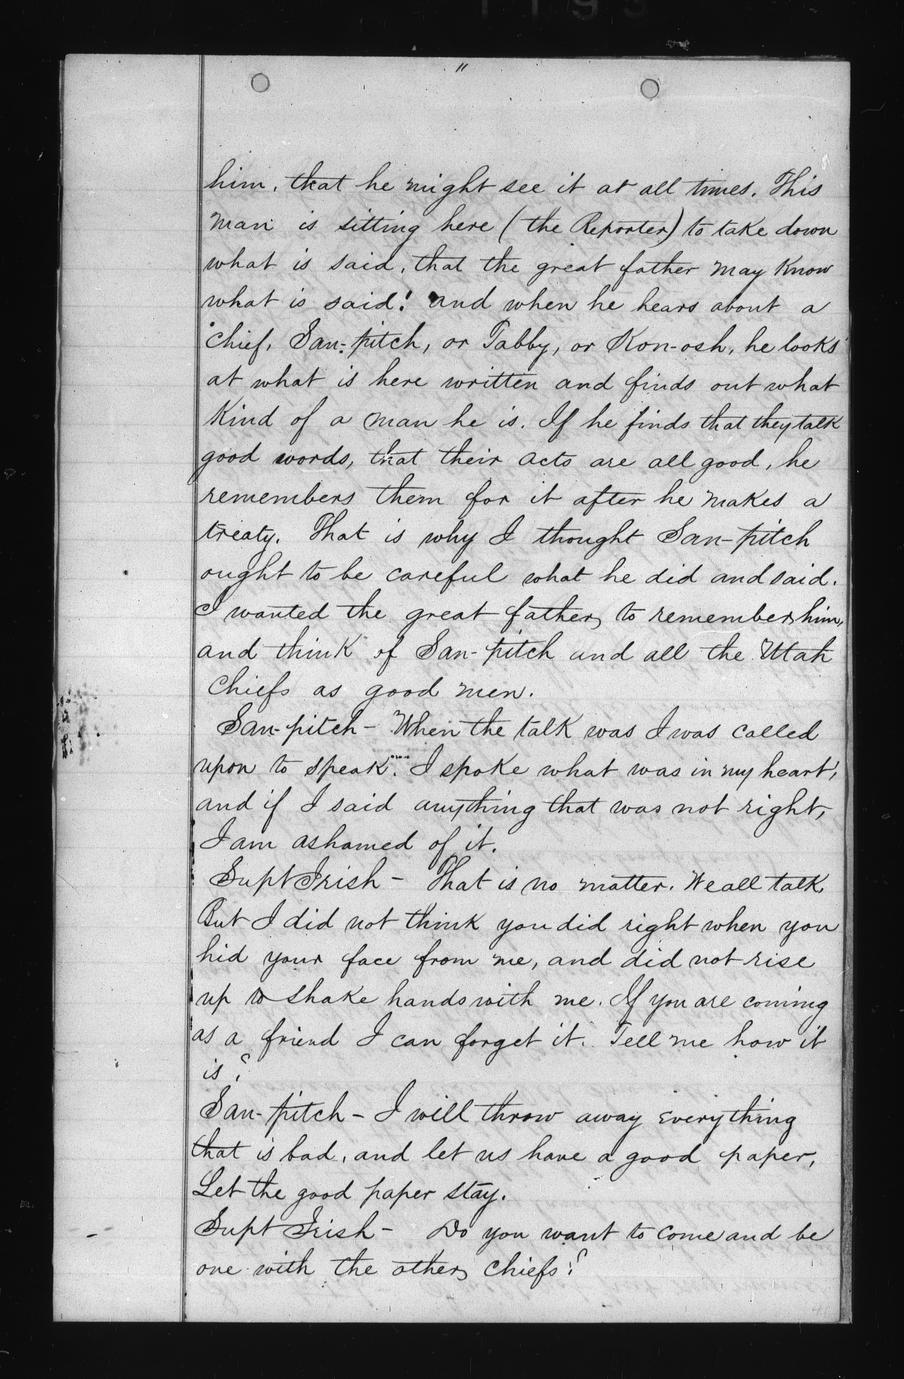 "
him, that he might see it at all times. This
man is sitting here (the Reporter) to take down
what is said, that the great father may know
what is said! and when he hears about a
chief, San-pitch, or Tabby, or Kon-osh, he looks
at what is here written and finds out what
kind of a man he is. If he finds that they talk
good words, that their acts are all good, he
remembers them for it after he makes a
treaty. That is why I thought San-pitch
ought to be careful what he did and said.
I wanted the great father, to remember him,
and think of San-pitch and all the Utah
Chiefs as good men.
San-pitch - When the talk was I was called
upon to speak. I spoke what was in my heart,
and if I said anything that was not right,
I am ashamed of it.
Supt Irish - That is no matter. We all talk
But I did not think you did right when you
hid your face from me, and did not rise
up to shake hands with me. If you are coming
as a friend I can forget it. Tell me how it
is?
San-pitch - I will throw away everything
that is bad, and let us have a good paper,
Let the good paper stay.
Supt Irish - Do you want to come and be
one with the other, chiefs?